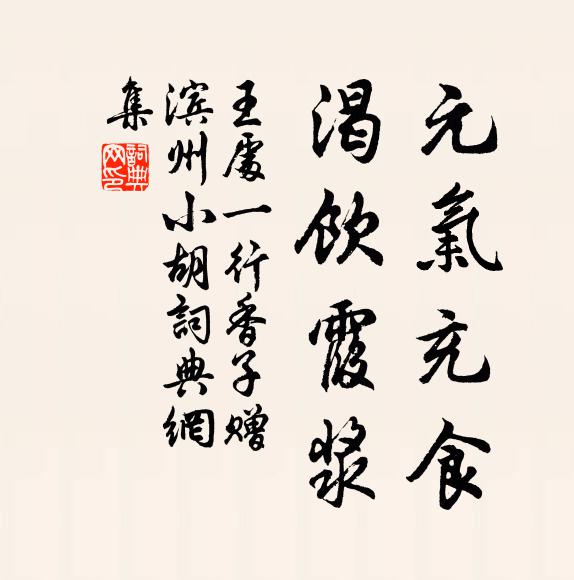 元氣充食
渴飲霞漿
王處一行香子赠
滨州小胡詞典網
集
詞典網印